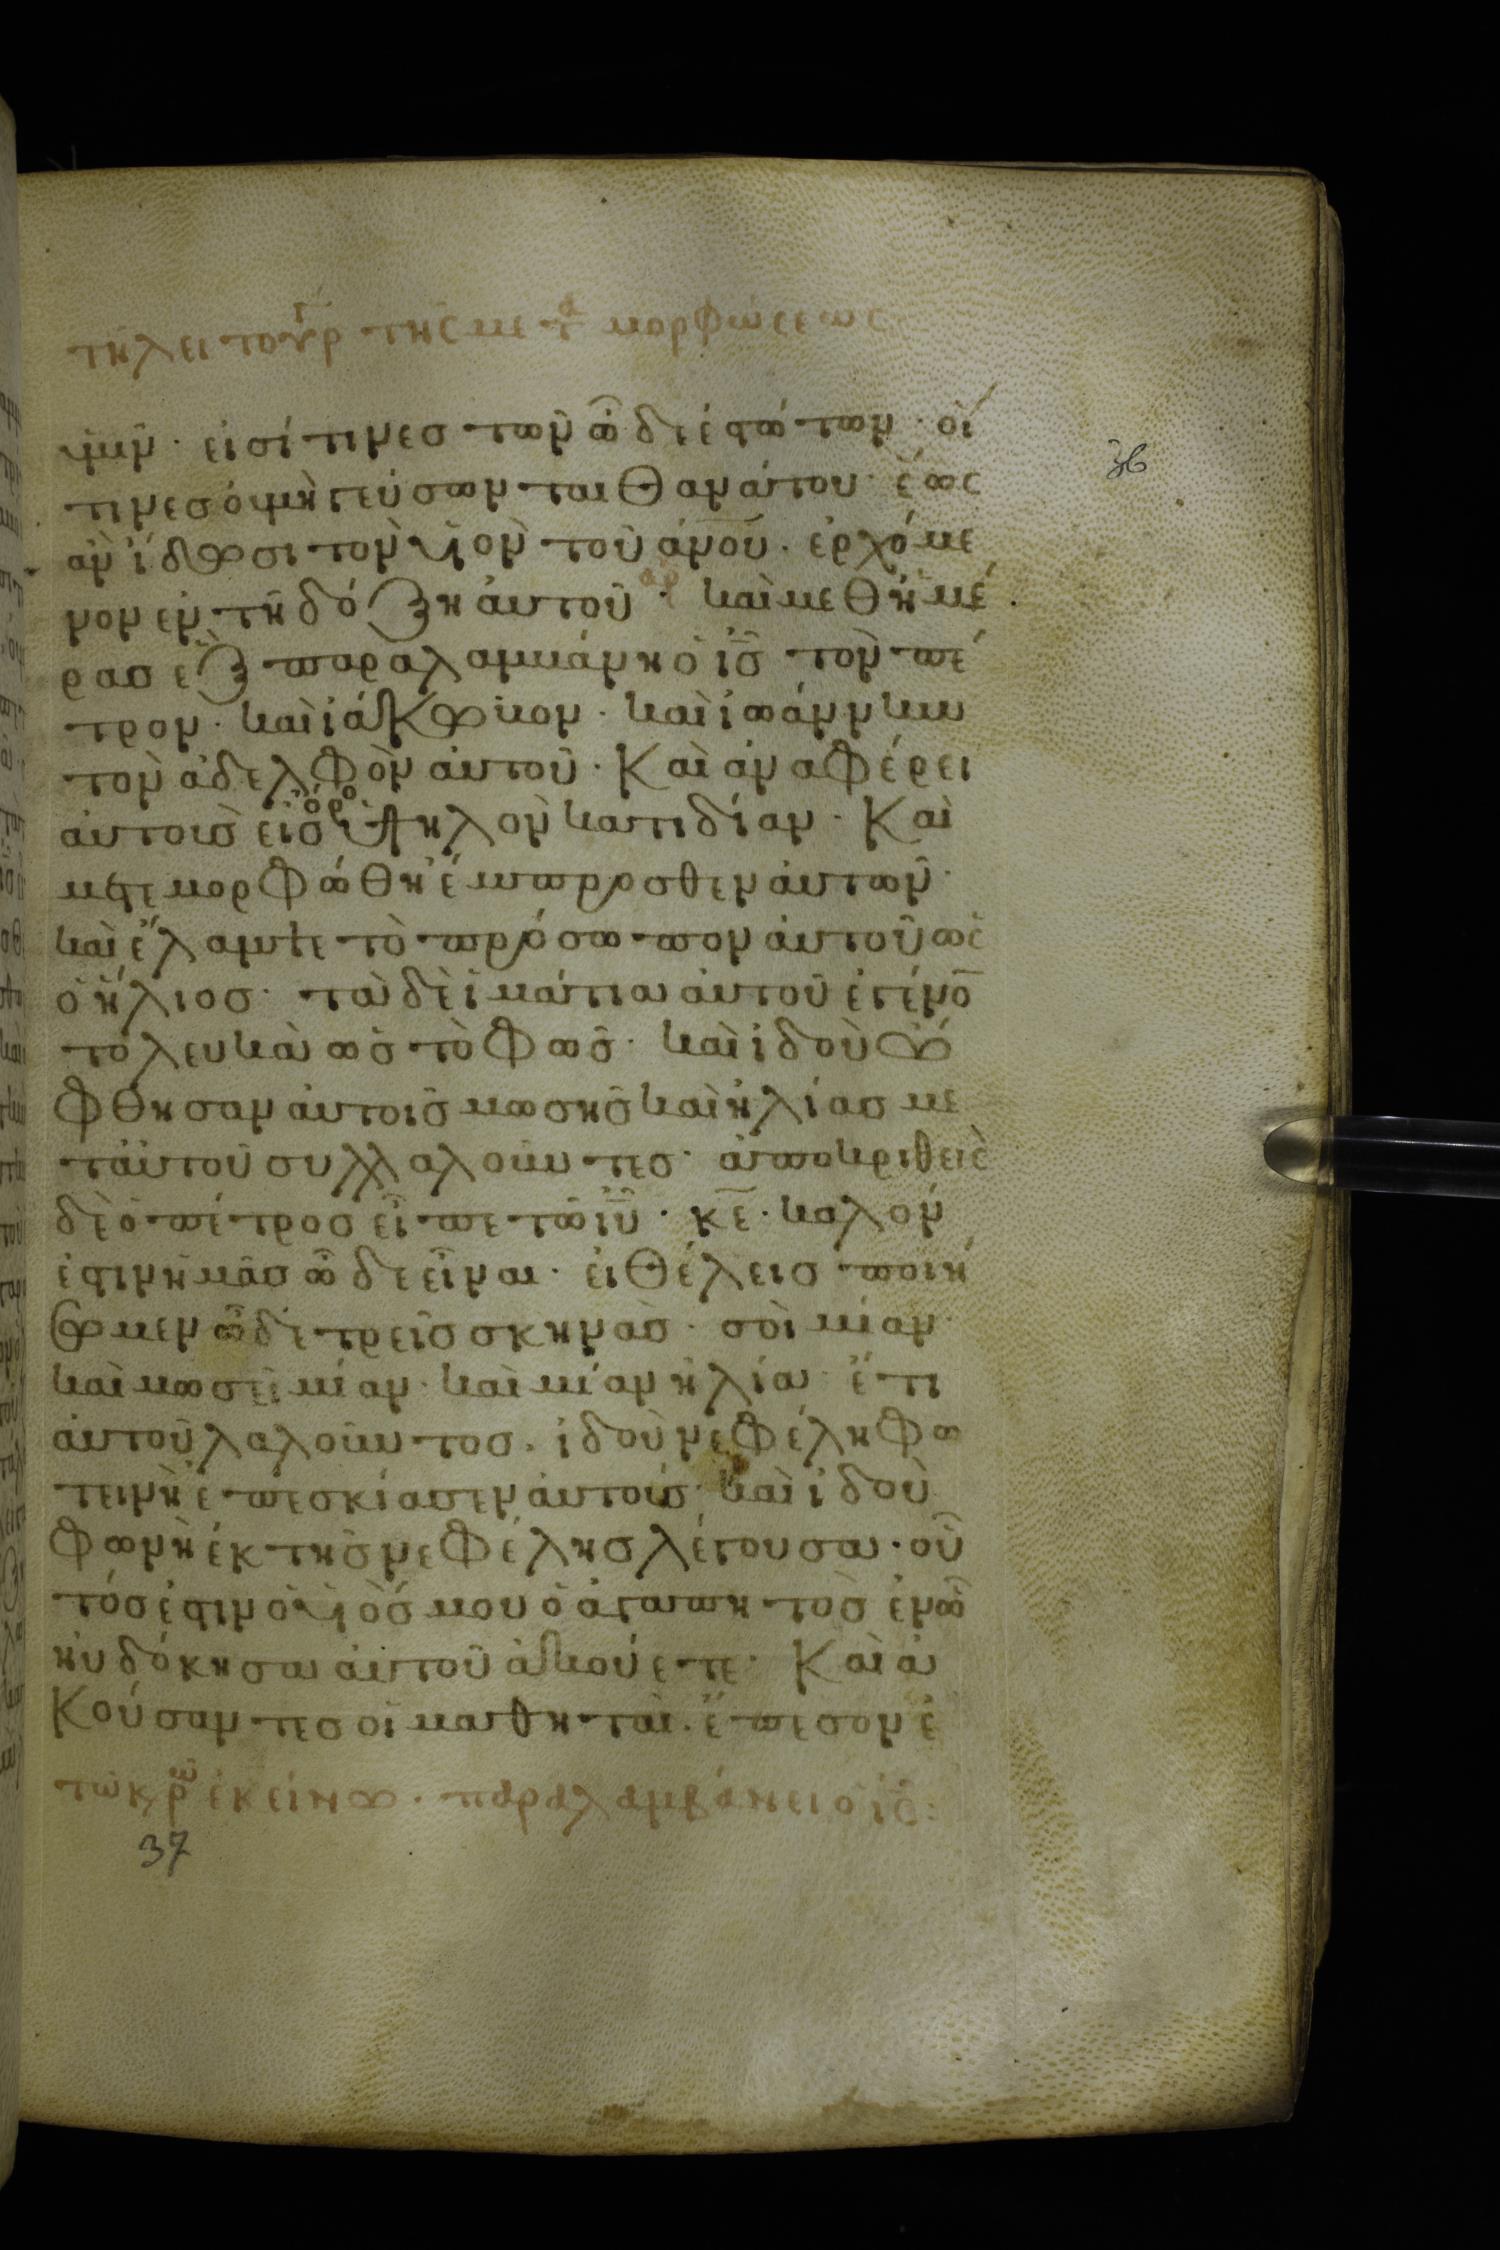 τη λειτουργ της μετ α μορφώσεως
ὑμῖν · εἰσί τινεσ τῶν ὧδε ἑστώτων · οἵ
τινεσ οὐ μὴ γεύσωνται θανάτου · ἕως
ἂν ἴδωσι τὸν υἱὸν τοῦ ἀν̅ου̅ · ἐρχόμε
νον ἐν τῆ δόξη αὐτοῦ · αρ καὶ μεθ ἡμέ
ρασ ἓξ παραλαμβάνει ὁ ι̅ς̅ τὸν πέ
τρον · καὶ ἰάκωβον · καὶ ἰωάννην
τὸν ἀδελφὸν αὐτοῦ · Καὶ ἀναφέρει
αὐτοὺσ εἰσ ὄρο ὑψηλὸν κατιδίαν · Καὶ
μετεμορφώθη ἔμπροσθεν αὐτῶν ·
καὶ ἔλαμψε τὸ πρόσωπον αὐτοῦ ὡς
ὁ ἥλιοσ · τὰ δὲ ἱμάτια αὐτοῦ ἐγένο̅
το λευκὰ ὡσ τὸ φῶσ · καὶ ἰδοὺ ὤ
φθησαν αὐτοῖσ μωσῆσ καὶ ἠλίασ με
τ αὐτοῦ συλλαλοῦντεσ · ἀποκριθεὶς
δὲ ὁ πέτροσ εἶπε τῶ ι̅υ̅ · κ̅ε̅ · καλόν
ἐστιν ἡμᾶσ ὧδε εἶναι · εἰ θέλεισ ποιή
σωμεν ὧδε τρεῖσ σκηνάσ · σοὶ μίαν
καὶ μωσεῖ μίαν · καὶ μίαν ἠλία · ἔτι
αὐτοῦ λαλοῦντοσ · ἰδοὺ νεφέλη φω
τεινὴ ἐπεσκίασεν αὐτούσ · καὶ ἰδοὺ
φωνὴ ἐκ τῆσ νεφέλησ λέγουσα · οὗ
τόσ ἐστιν ὁ υἱόσ μου ὁ ἀγαπητὸσ ἐν ὧ
ηὐδόκησα αὐτοῦ ἀκούετε · Καὶ ἀ
Κούσαντεσ οἱ μαθηταὶ · ἔπεσον ἐ
τῶ κ ρ ω ἐκείνω · παραλαμβάνει ὁ ι̅ς̅ :
37